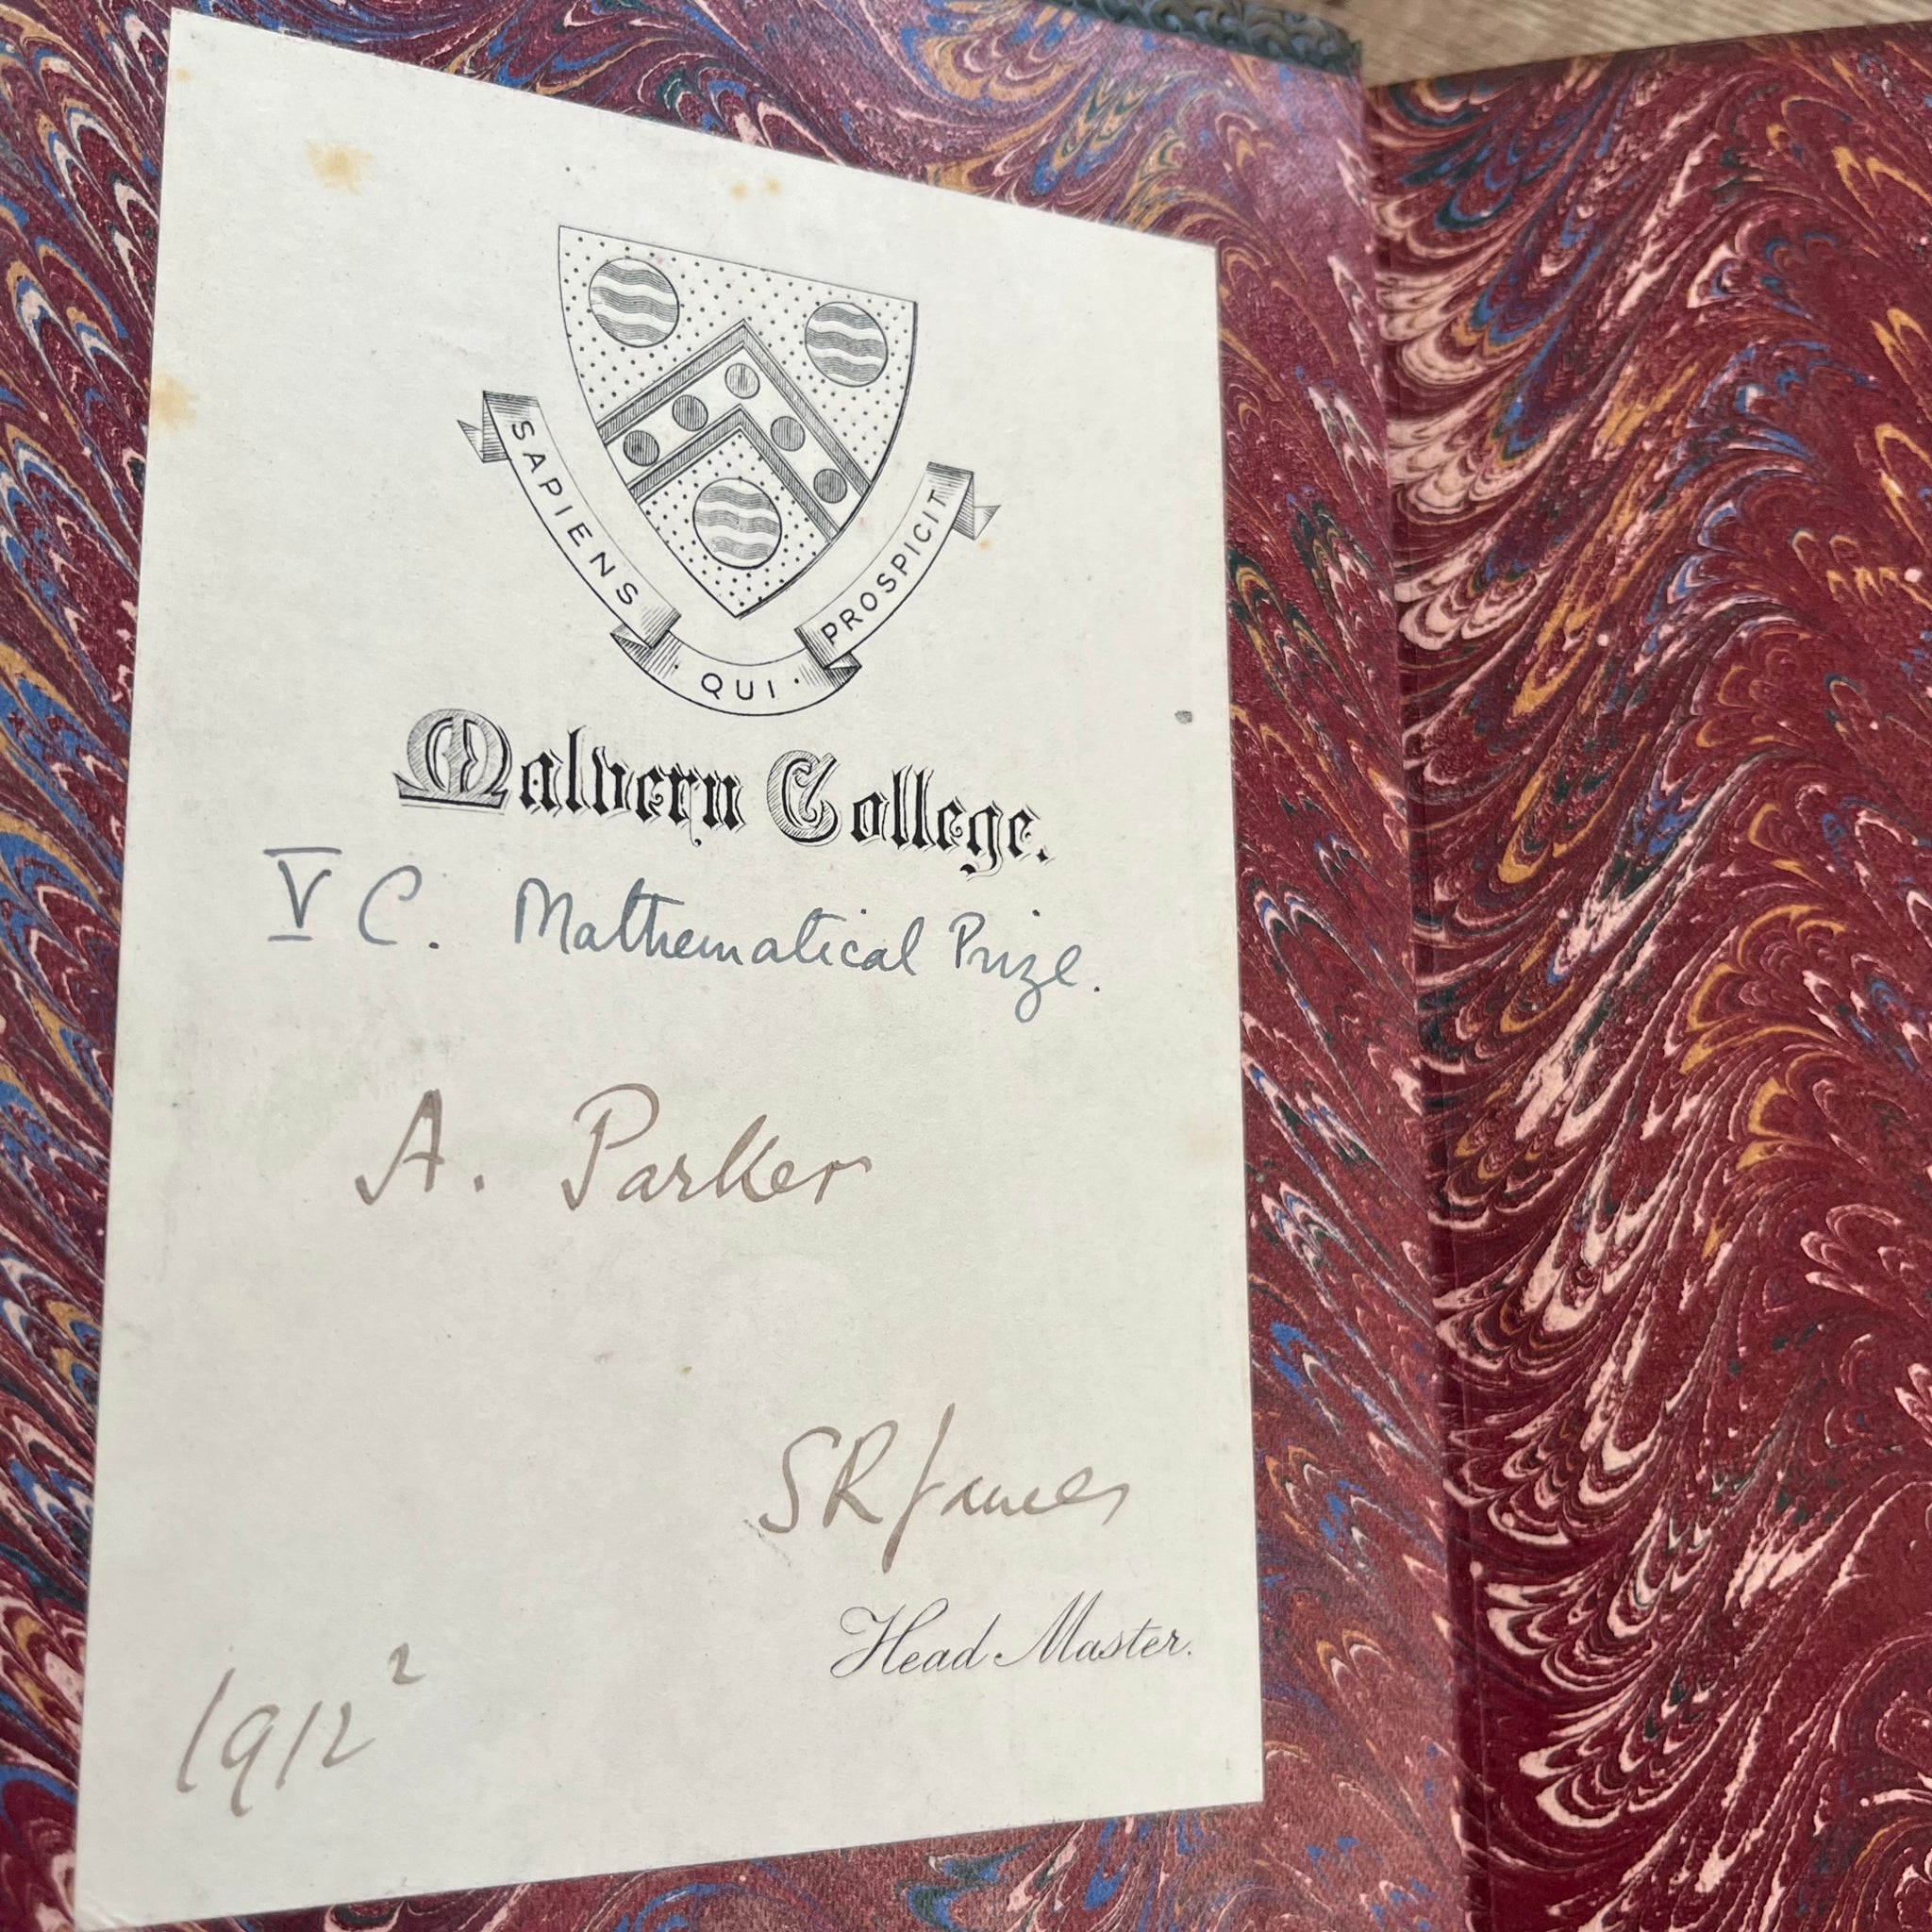 SAPIENS · QUI · PROSPICIT
Malvern College.
V C. Mathematical Prize.
A. Parker
SRJames
Head Master.
1912²